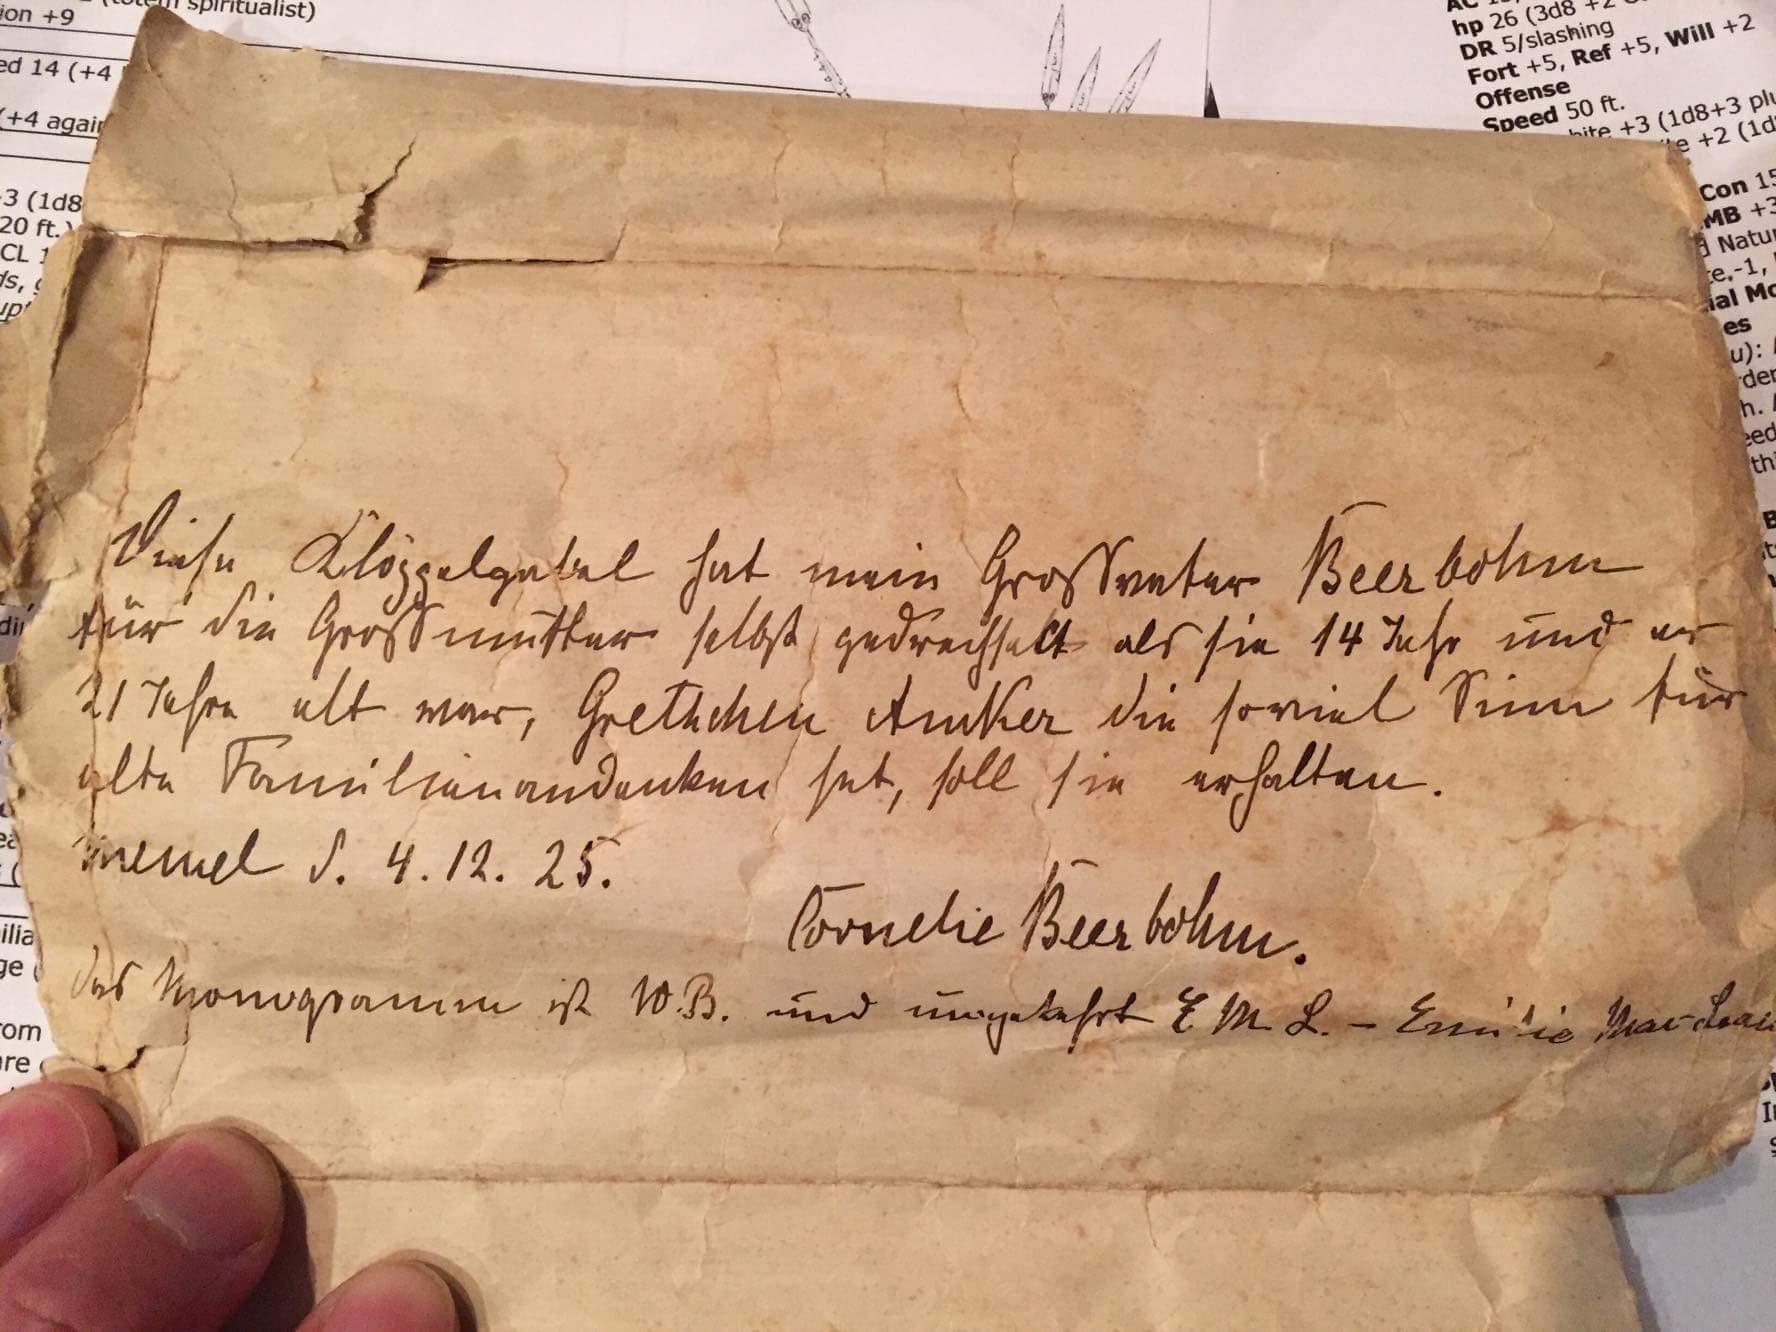 (totem spiritualist)
ion +9
ed 14 (+4
(+4 again
+3 (1d8
20 ft.)
CL 1
hp 26 (3d8 +2
DR 5/slashing
Fort +5, Ref +5, Will +2
Offense
Speed 50 ft.
bite +3 (1d8+3 plu
+2 (1d
Con 15
MB +3
Natur
Diese Klöppelgabel hat mein Grossvater Beerbohm
für die Grossmutter selbst gedrechselt als sie 14 Jahr und er
21 Jahre alt war, Gretchen Anker die soviel Sinn für
alte Familienandenken hat, soll sie erhalten.
Memel d. 4.12.25.
Cornelie Beerbohm.
Das Monogramm ist W.B. und umgekehrt E M L. – Emilie Mac-Lean